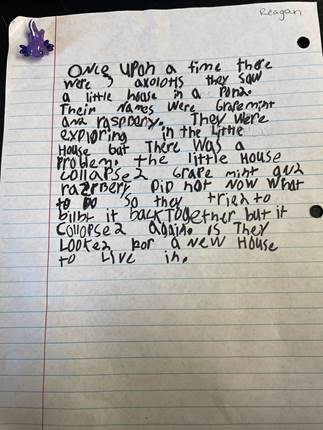 Reagan
Once upon a time there
were 2 axolotls they saw
a little house in a pond.
Their names were Grapemint
and raspbery. They were
exploring in the little
House but There was a
problem. the little House
collapse2 Grape mint and
razbery Did not Now what
to Do so they tried to
bilbt it back Together but it
collopse2 again. is They
Looked for a New House
to Live in.